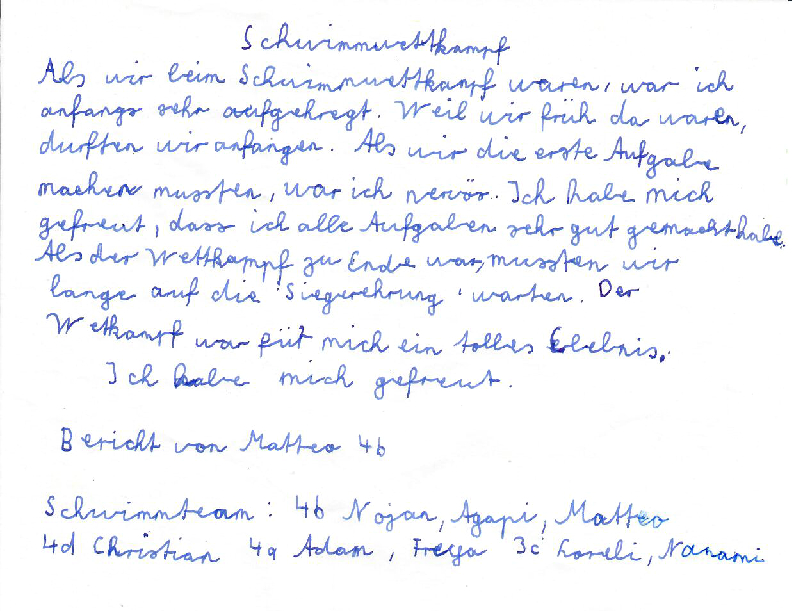 Schwimmwettkampf
Als wir beim Schwimmwettkampf waren, war ich
anfangs sehr aufgehregt. Weil wir früh da waren,
durften wir anfangen. Als wir die erste Aufgabe
machen mussten, war ich nervös. Ich habe mich
gefreut, dass ich alle Aufgaben sehr gut gemacht habe.
Als der Wettkampf zu Ende war, mussten wir
lange auf die 'Siegerehrung' warten. Der
Wetkampf war für mich ein tolles Erlebnis.
Ich habe mich gefreut.
Bericht von Matteo 4b
Schwimmteam: 4b Nojan, Agapi, Matteo
4d Christian 4a Adam, Freya 3c Loreli, Nanami